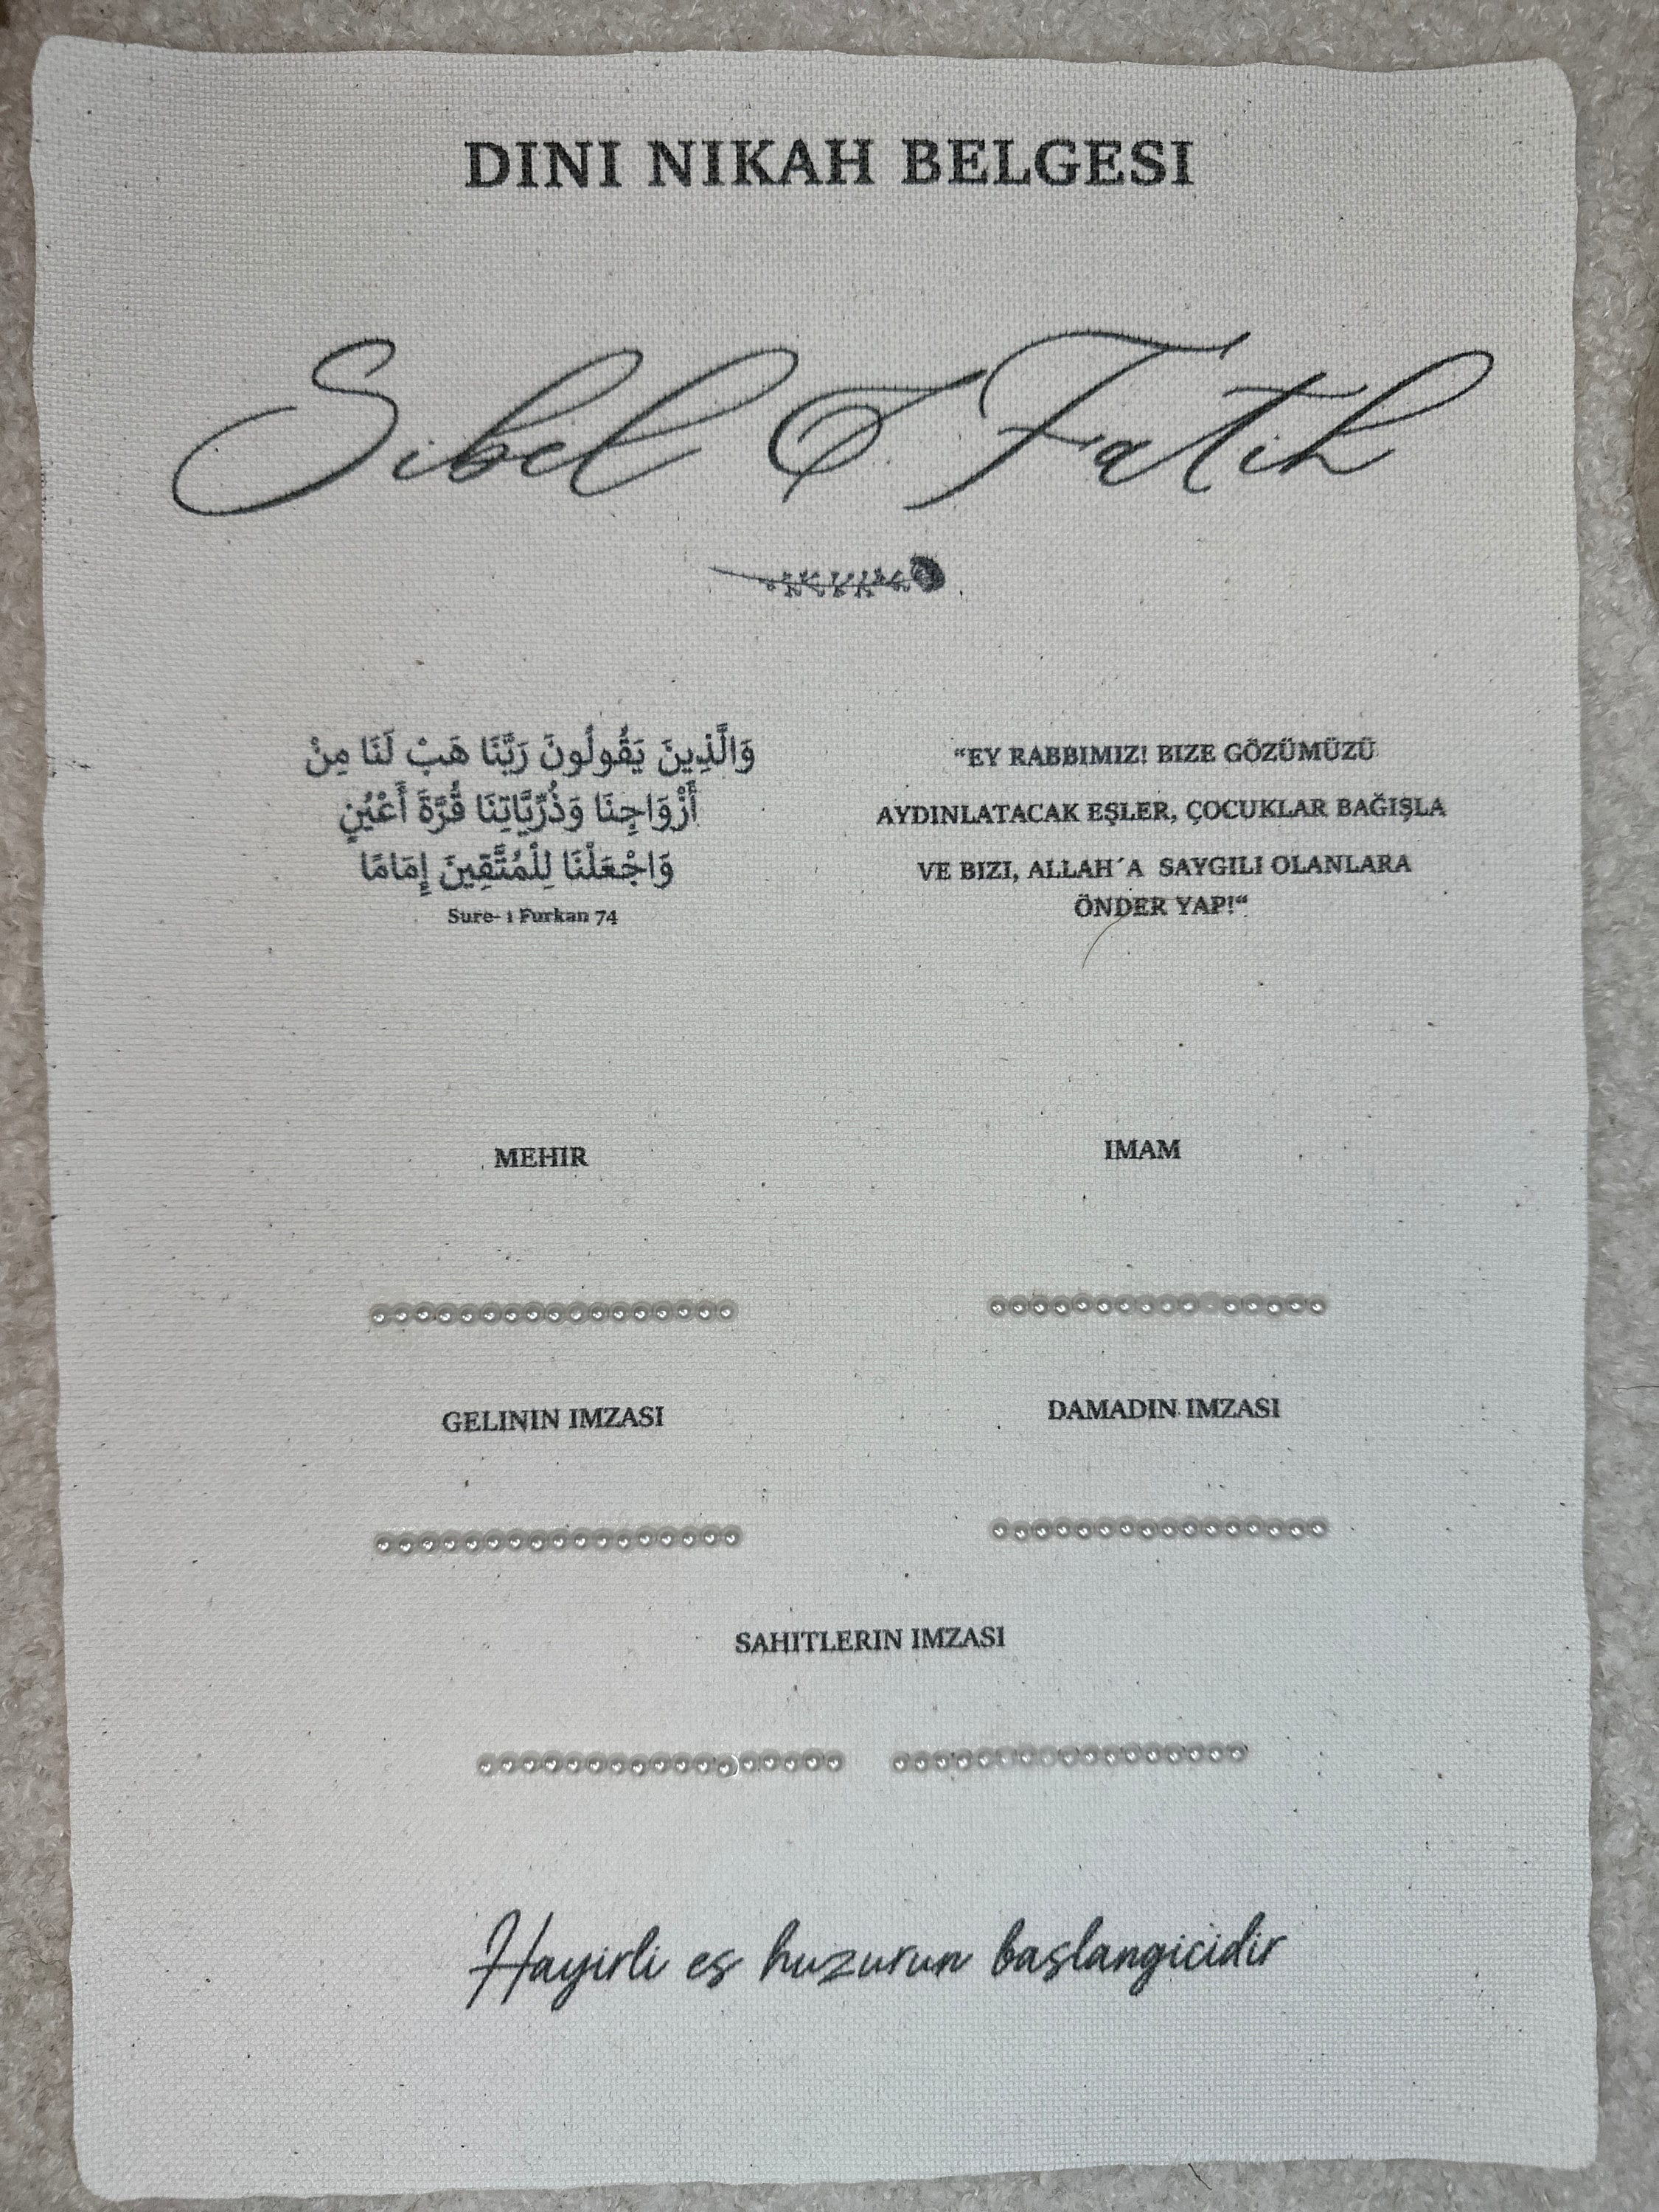 DINI NIKAH BELGESI
Sibel & Fatih
وَالَّذِينَ يَقُولُونَ رَبَّنَا هَبْ لَنَا مِنْ
أَزْوَاجِنَا وَذُرِّيَّاتِنَا قُرَّةَ أَعْيُنٍ
وَاجْعَلْنَا لِلْمُتَّقِينَ إِمَامًا
Sure- i Furkan 74
“EY RABBIMIZ! BIZE GÖZÜMÜZÜ
AYDINLATACAK EŞLER, ÇOCUKLAR BAĞIŞLA
VE BIZI, ALLAH´A SAYGILI OLANLARA
ÖNDER YAP!“
MEHIR
IMAM
GELININ IMZASI
DAMADIN IMZASI
SAHITLERIN IMZASI
Hayirli es huzurun baslangicidir